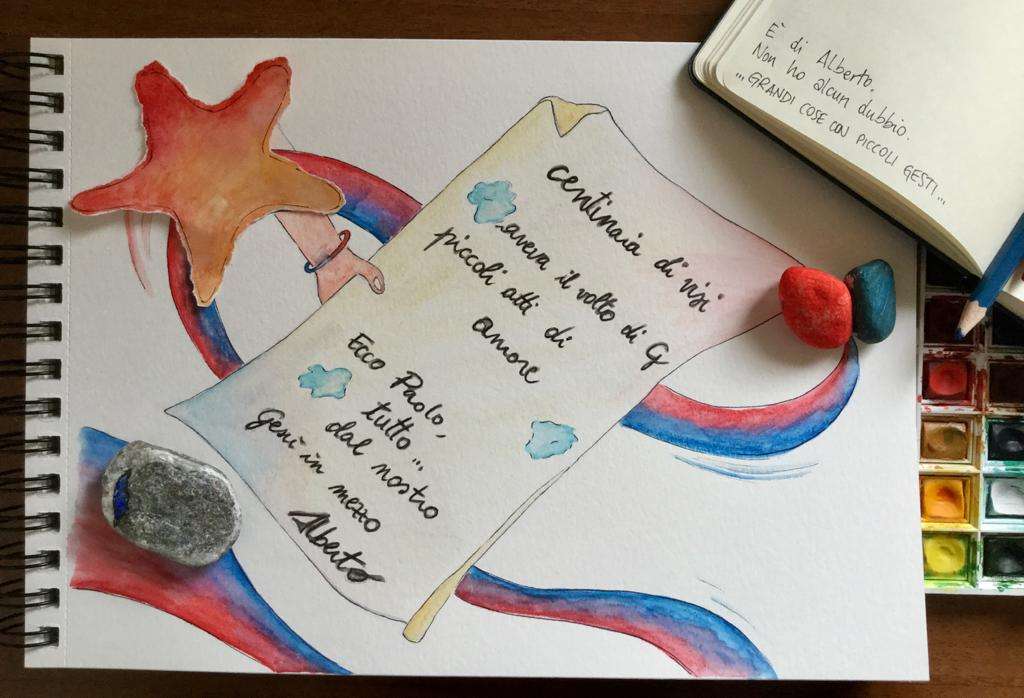 È di Alberto.
Non ho alcun dubbio.
...GRANDI COSE CON PICCOLI GESTI...
centinaia di visi
aveva il volto di G
piccoli atti di
amore
Ecco Paolo,
tutto...
dal nostro
Gesù in mezzo
Alberto